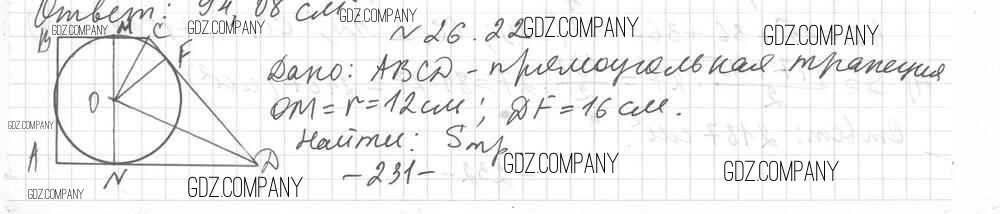 Ответ: 94,08 см
GDZ.COMPANY GDZ.COMPANY GDZ.COMPANY GDZ.COMPANY GDZ.COMPANY
N 26.22
B M C F
Дано: ABCD - прямоугольная трапеция
O
OM = r = 12 см; DF = 16 см.
GDZ.COMPANY
Найти: Sтр
A D
GDZ.COMPANY GDZ.COMPANY
N
- 231 -
GDZ.COMPANY GDZ.COMPANY